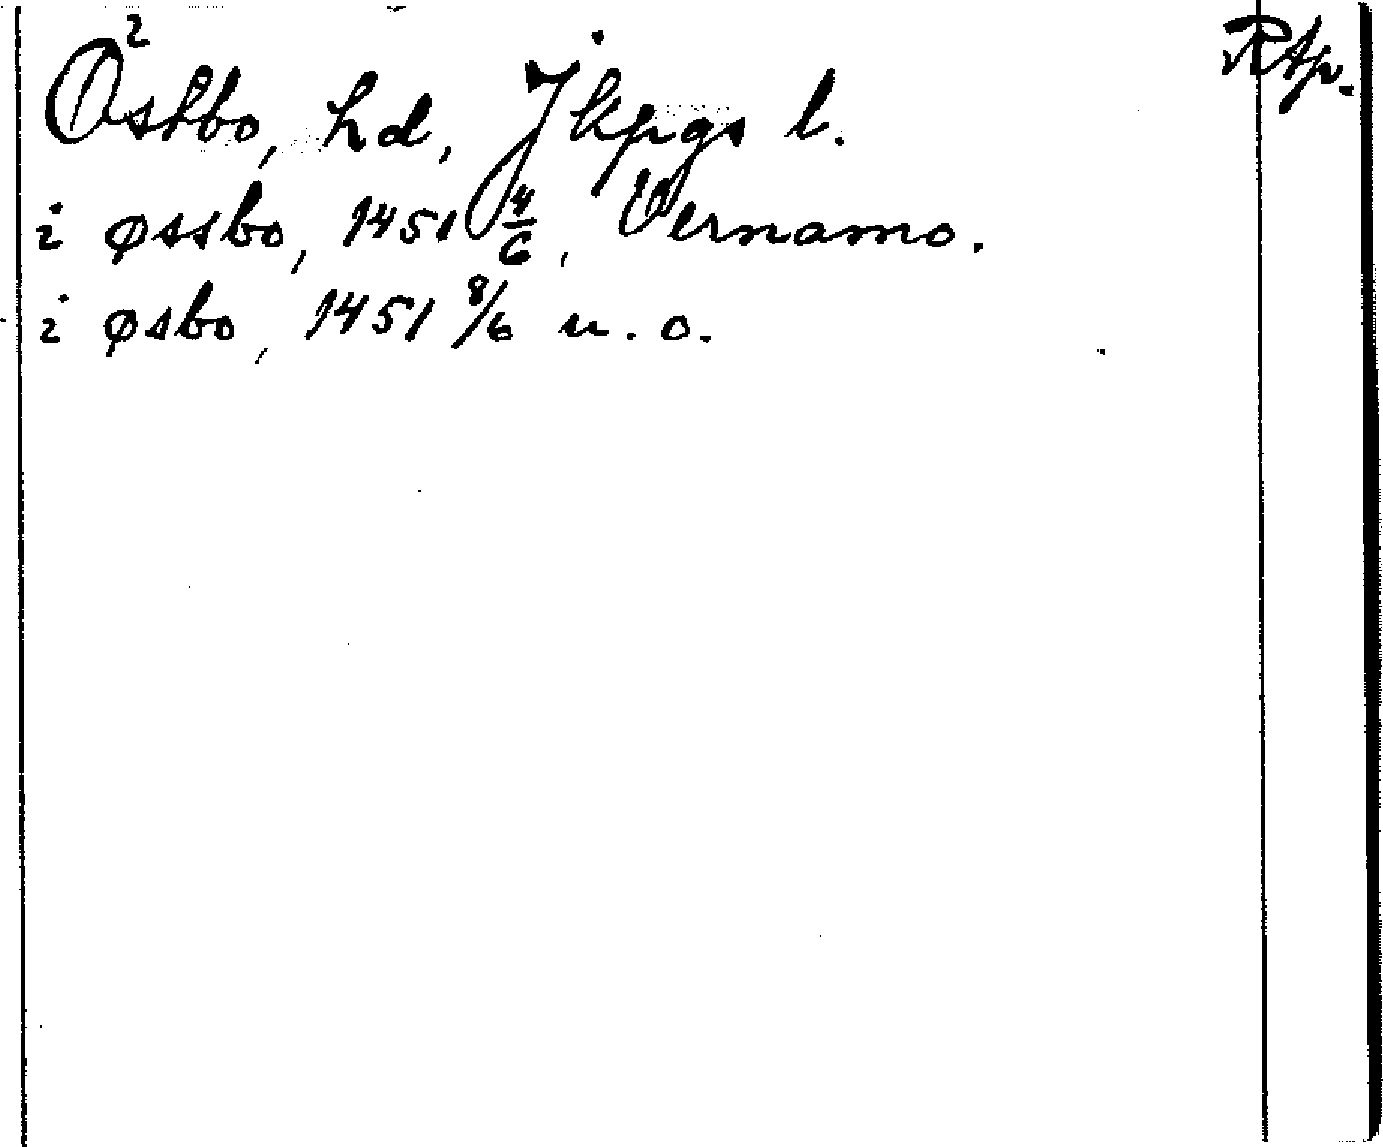 Östbo, hd, Jkpgs l.
RAp.
i øssbo, 1451 4/6, Vernamo.
i øsbo, 1451 8/6 u. o.